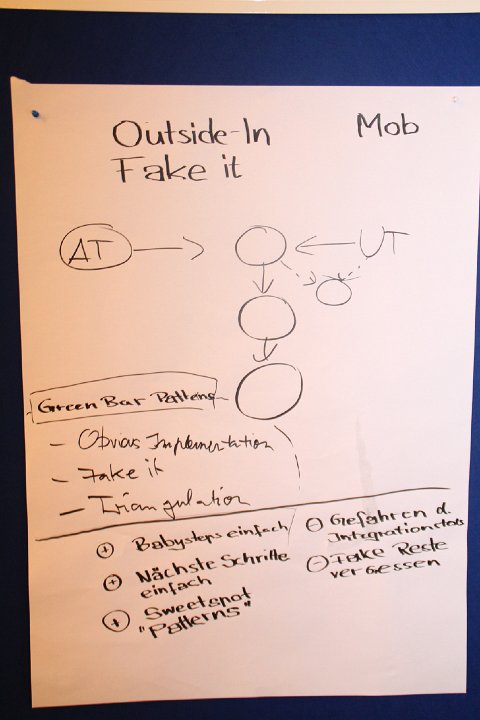 Outside-In Mob
Fake it
AT UT
Green Bar Pattens
- Obvias Implementation
- Fake it
- Triangulation
⊕ Babysteps einfach
⊕ Nächste Schritte
einfach
⊕ Sweetspot
"Patterns"
⊖ Gefahren d.
Integrationtests
⊖ Fake Reste
vergessen